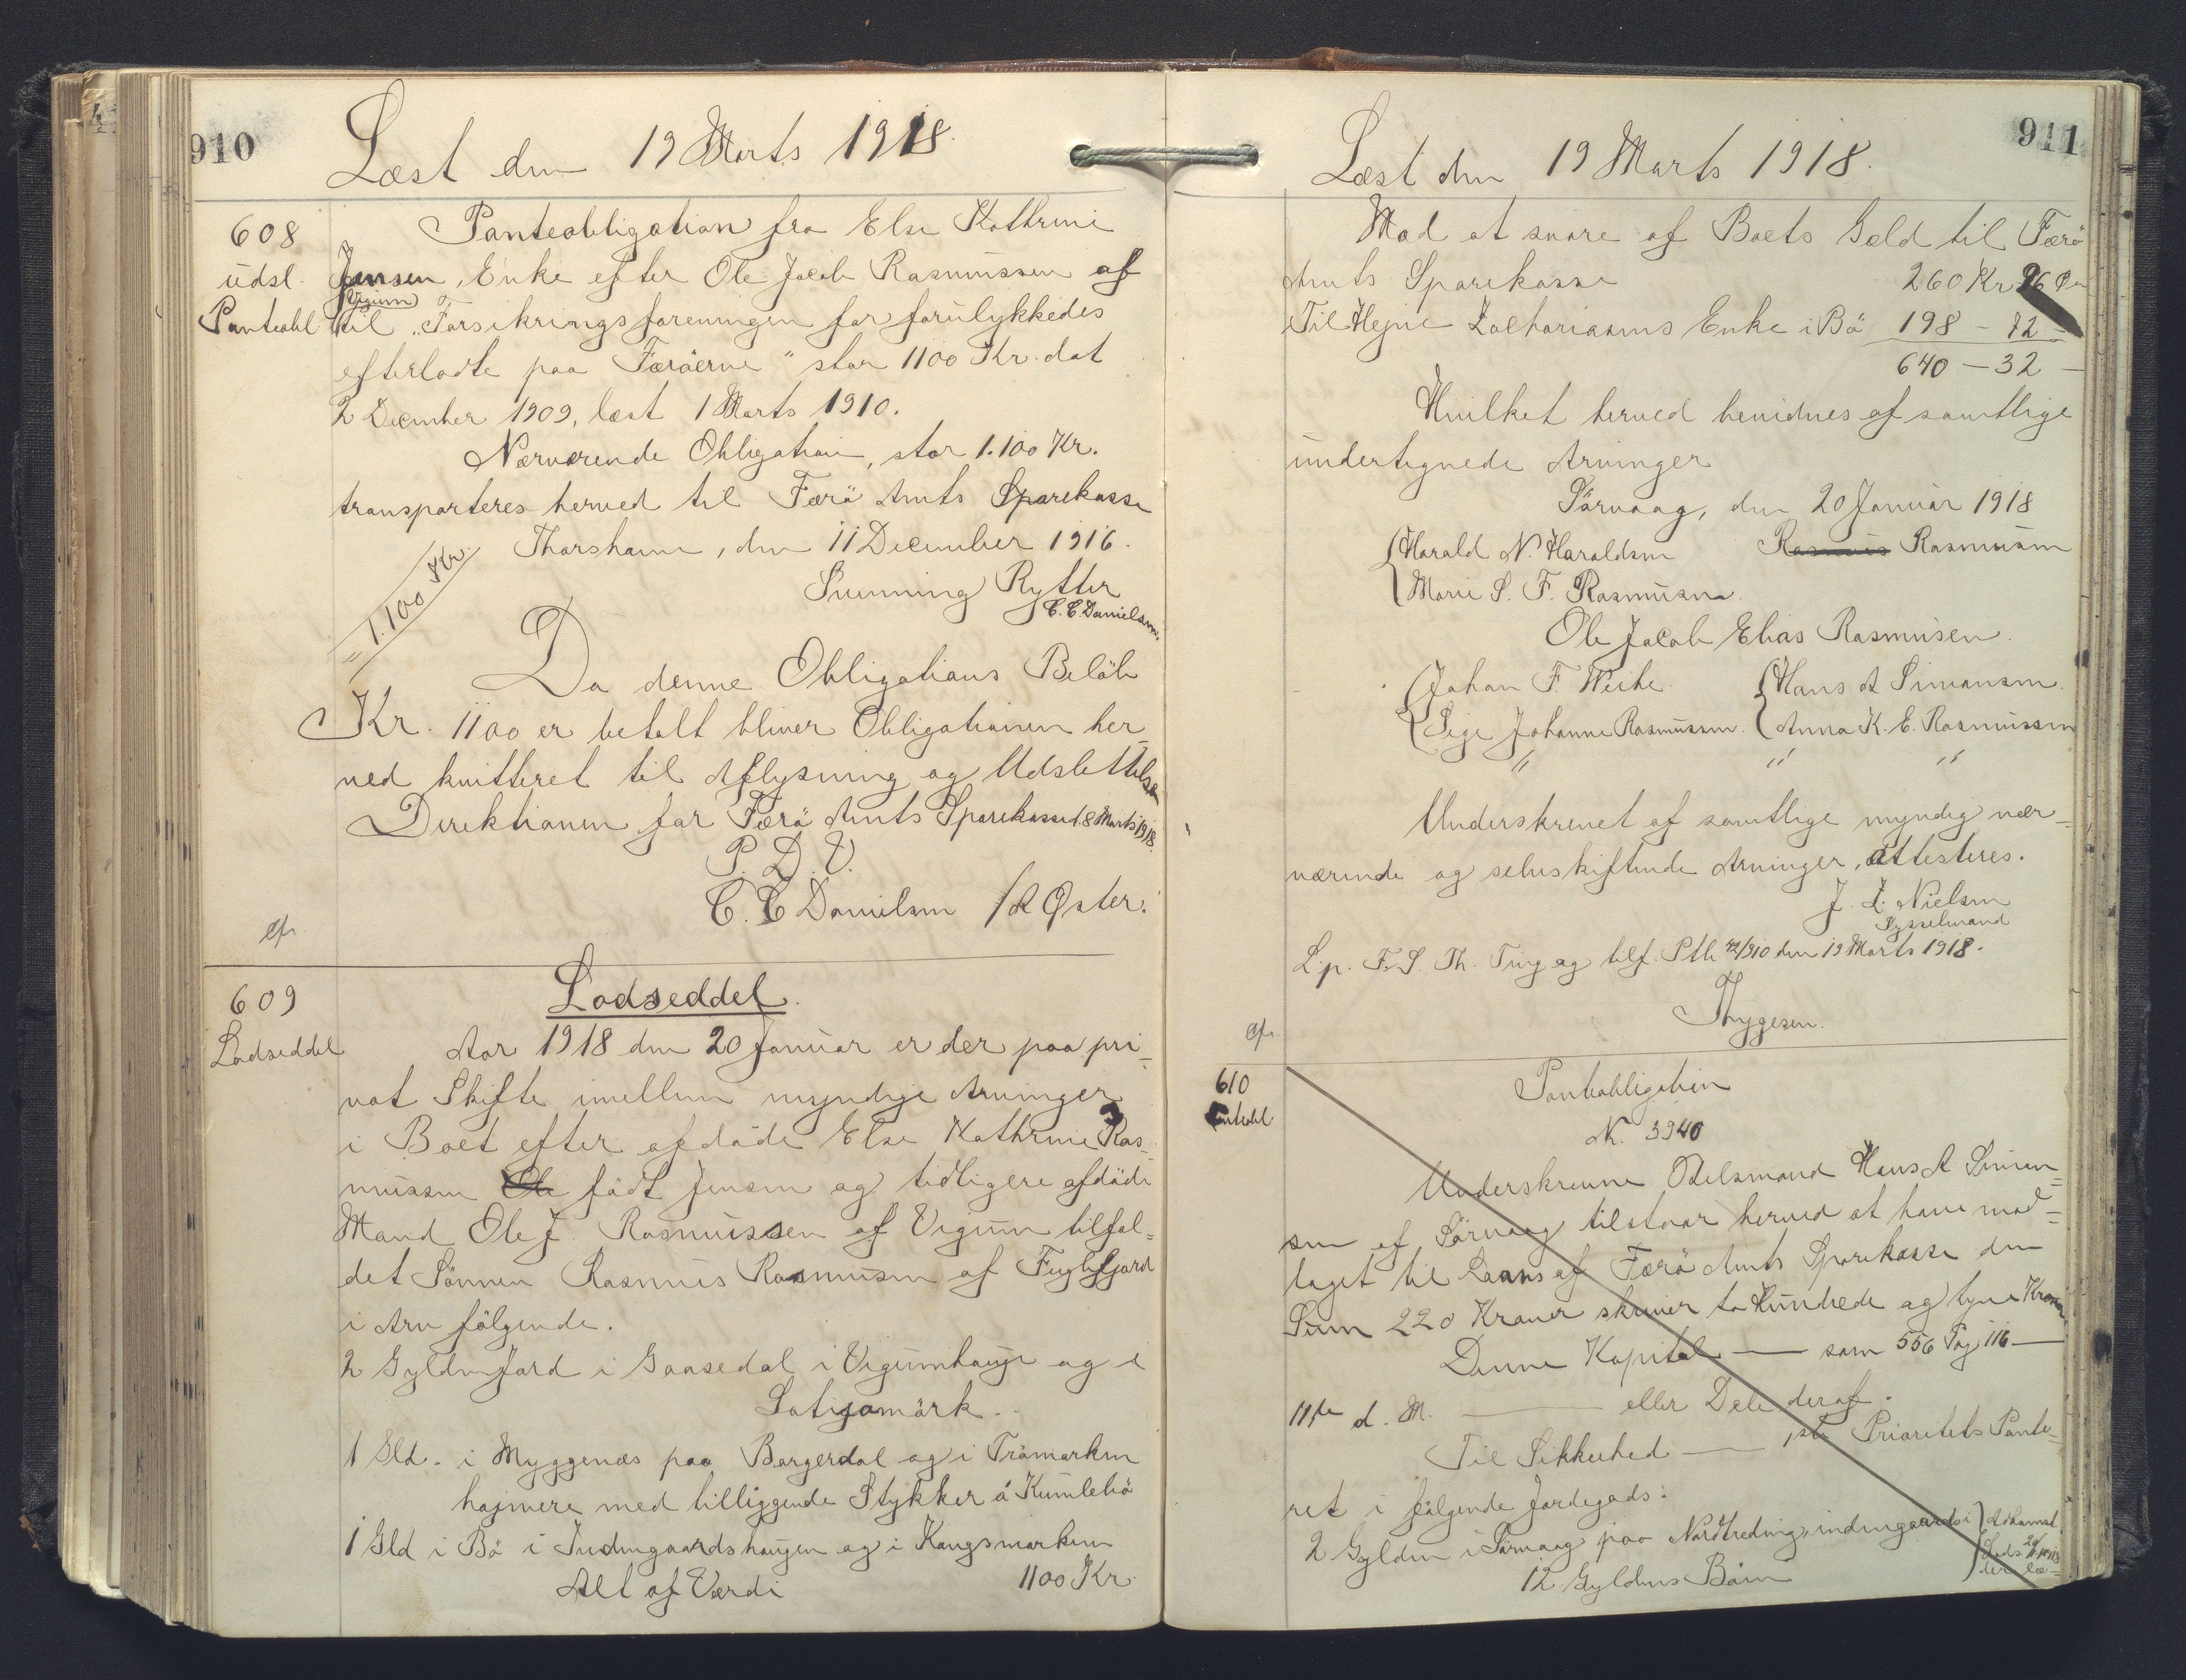 910
Læst den 19 Marts 1918.
608
udsl.
Panteobl
Panteobligation fra Else Kathrine
Jensen, Enke efter Ole Jacob Rasmussen af
Vigum
til "Forsikringsforeningen for forulykkedes
efterladte paa Færöerne" stor 1100 Kr. dat
2 December 1909, læst 1 Marts 1910.
Nærværende Obligation, stor 1.100 Kr.
transporteres herved til Færö Amts Sparekasse
Thorshavn, den 11 December 1916.
= 1.100 Kr.
Rytter
C. C. Danielsen.
Da denne Obligations Belöb
Kr. 1100 er betalt bliver Obligationen her-
ved kvitteret til Aflysning og Udslettelse
Direktionen for Færö Amts Sparekasse d. 8 Marts 1918.
P. D. V.
C. C Danielsen / A Øster.
609
Lodseddel
Lodseddel.
Aar 1918 den 20 Januar er der paa pri-
vat Skifte imellem myndige Arvinger
i Boet efter afdöde Else Kathrine Ras-
mussen Ole födt Jensen og tidligere afdöde
Mand Ole J. Rasmussen af Vigum tilfal-
det Sönnen Rasmus Rasmussen af Fuglefjord
i Arv fölgende.
2 Gylden Jord i Gaasedal i Vigumhauge og i
Latigamörk.
1 Gld. i Myggenæs paa Borgerdal og i Trömarken
hajmere med tilliggende Stykker á Kumlebö
1 Gld i Bö i Indengaardshaugen og i Kongsmarken
Alt af Værdi 1100 Kr.
911
Læst den 19 Marts 1918.
Mod at svare af Boets Gæld til Færö
Amts Sparekasse 260 Kr 96 Øre
Til Hejne Zachariasens Enke i Bö 198 - 72 -
640 - 32 -
Hvilket herved bevidnes af samtlige
undertegnede Arvinger
Sörvaag, den 20 Januar 1918
Harald N. Haraldsen Rasmus Rasmussen
Marie S. F. Rasmussen.
Ole Jacob Elias Rasmussen.
Johan F. Weihe. Hans A Simonsen.
Sige Johanne Rasmussen. Anna K. E. Rasmussen
" " "
Underskrevet af samtlige myndig nær-
værende og selvskiftende Arvinger, attesteres.
J. L. Nielsen
Sysselmand
L. p. F. S. Th. Ting og tilf. Ptb /910 den 19 Marts 1918.
Thygesen.
610
Panteobl
Panteobligation
N. 3940
Underskrevne Odelsmand Hans A Simon-
sen af Sörvaag tilstaar herved at have mod-
taget til Laans af Færö Amts Sparekasse den
Sum 220 Kroner skriver to Hundrede og tyve Kroner
Denne Kapital — som 556 Pag 116 —
11te d. M. — eller Dele deraf.
Til Sikkerhed — 1ste Prioritets Pante-
ret i fölgende Jordegods:
2 Gylden i Sörvaag paa Nordtreding, indengaards i
12 Gyldens Böin